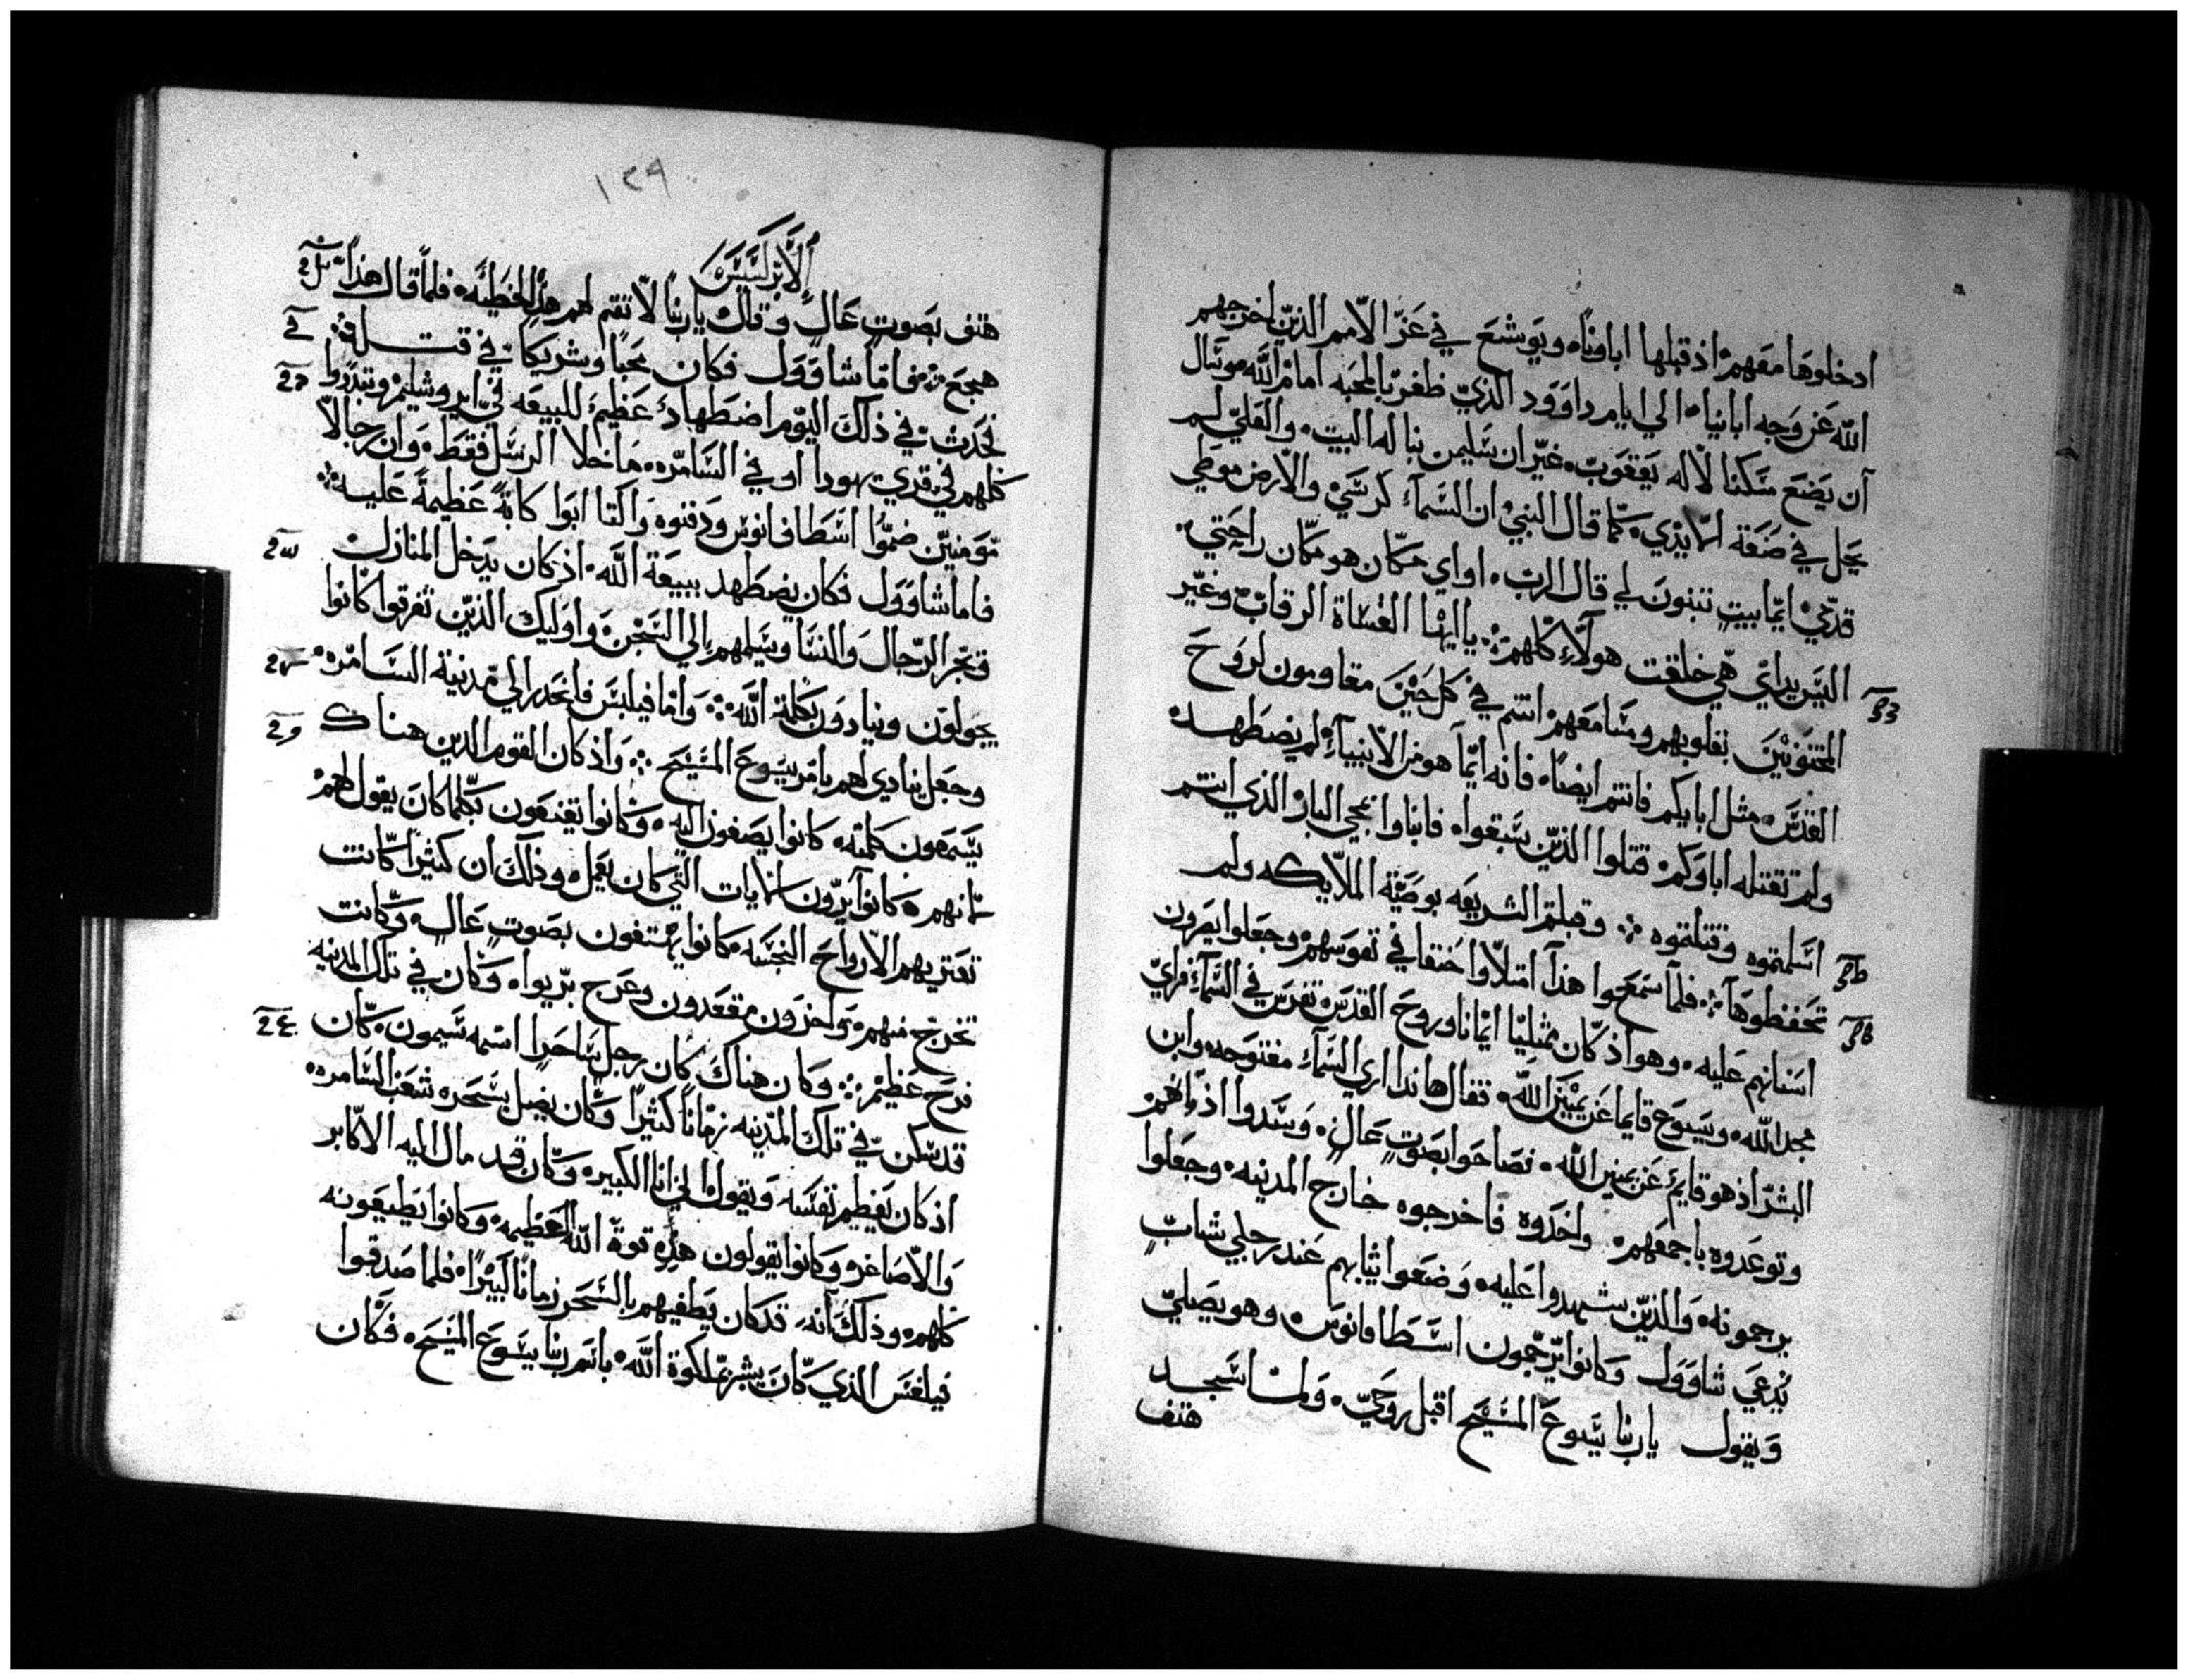 ادخلوها معهم اذ قبلها اباونا ويوشع في عز الامم الذين اخرجهم
الله عن وجه ابانيا الي ايام داوود الذي ظفر بالمحبه امام الله وسال
ان يضع سكنا لاله يعقوب غير ان سليمن بنا له البيت والعلي لم
يحل في صنعة الايدي كما قال النبي ان السما كرسي والارض موطي
قدمي ايما بيت تبنون لي قال الرب او اي مكان هو مكان راحتي
اليس يداي هي خلقت هولاء كلهم يا ايها القساة الرقاب وغير
المختونين بقلوبهم ومسامعهم انتم في كل حين مقاومون لروح
القدس مثل ابايكم فانتم ايضا فانه ايما هو من الانبياء لم يضطهد
ولم تقتله اباوكم قتلوا الذين سبقوا فانباوا بمجي البار الذي انتم
اسلمتموه وقتلتموه وقبلتم الشريعه بوصية الملايكه ولم
تحفظوها فلما سمعوا هذا امتلاوا حنقا في نفوسهم وجعلوا يصرون
اسنانهم عليه وهو اذ كان ممتليا ايمانا وروح القدس تفرس في السماء فراي
مجد الله ويسوع قايما عن يمين الله فقال هاندا اري السماء مفتوحه وابن
البشر اذ هو قايم عن يمين الله فصاحوا بصوت عال وسدوا اذانهم
وتوعدوه باجمعهم واخذوه فاخرجوه خارج المدينه وجعلوا
يرجمونه والذين شهدوا عليه وضعوا ثيابهم عند رجلي شاب
يدعي شاوول وكانوا يرجمون اسطافانوس وهو يصلي
ويقول يا ربنا يسوع المسيح اقبل روحي ولما سجد
هتف
١٢٩
الابركسيس
هتف بصوت عال وقال يا ربنا لا تقم لهم هذه الخطيه فلما قال هذا
هجع فاما شاوول فكان محبا وشريكا في قتله
فحدث في ذلك اليوم اضطهاد عظيم للبيعه في ايروشليم وتبددوا
كلهم في قري يهودا او في السامره ما خلا الرسل فقط وان رجالا
مومنين ضموا اسطافانوس ودفنوه واكتابوا كابة عظيمة عليه
فاما شاوول فكان يضطهد ببيعة الله اذ كان يدخل المنازل
فيجر الرجال والنسا ويسلمهم الي السجن واوليك الذين تفرقوا كانوا
يجولون وينادون بكلمة الله واما فيلبس فانحدر الي مدنية السامره
وجعل ينادي لهم بامر يسوع المسيح واذ كان القوم الدين هناك
يسمعون كلمته كانوا يصغون اليه وكانوا يقنعون بكلما كان يقول لهم
لانهم كانوا يرون الايات التي كان يعمل وذلك ان كثيرا كانت
تعتريهم الارواح النجسه كانوا يهتفون بصوت عال وكانت
تخرج منهم واخرون مقعدون وعرج بريوا وكان في تلك المدينه
فرح عظيم وكان هناك كان رجل ساحرا اسمه سيمون كان
قد سكن في تلك المدينه زمانا كثيرا وكان يضل بسحره شعب السامره
اذ كان يعظم نفسه ويقول اني انا الكبير وكان قد مال اليه الاكابر
والاصاغر وكانوا يقولون هذه قوة الله العظيمه وكانوا يطيعونه
كلهم وذلك انه قد كان يطغيهم بالسحر زمانا كبيرا فلما صدقوا
فيلغس الذي كان يبشر بملكوة الله باسم ربنا يسوع المسيح فكان